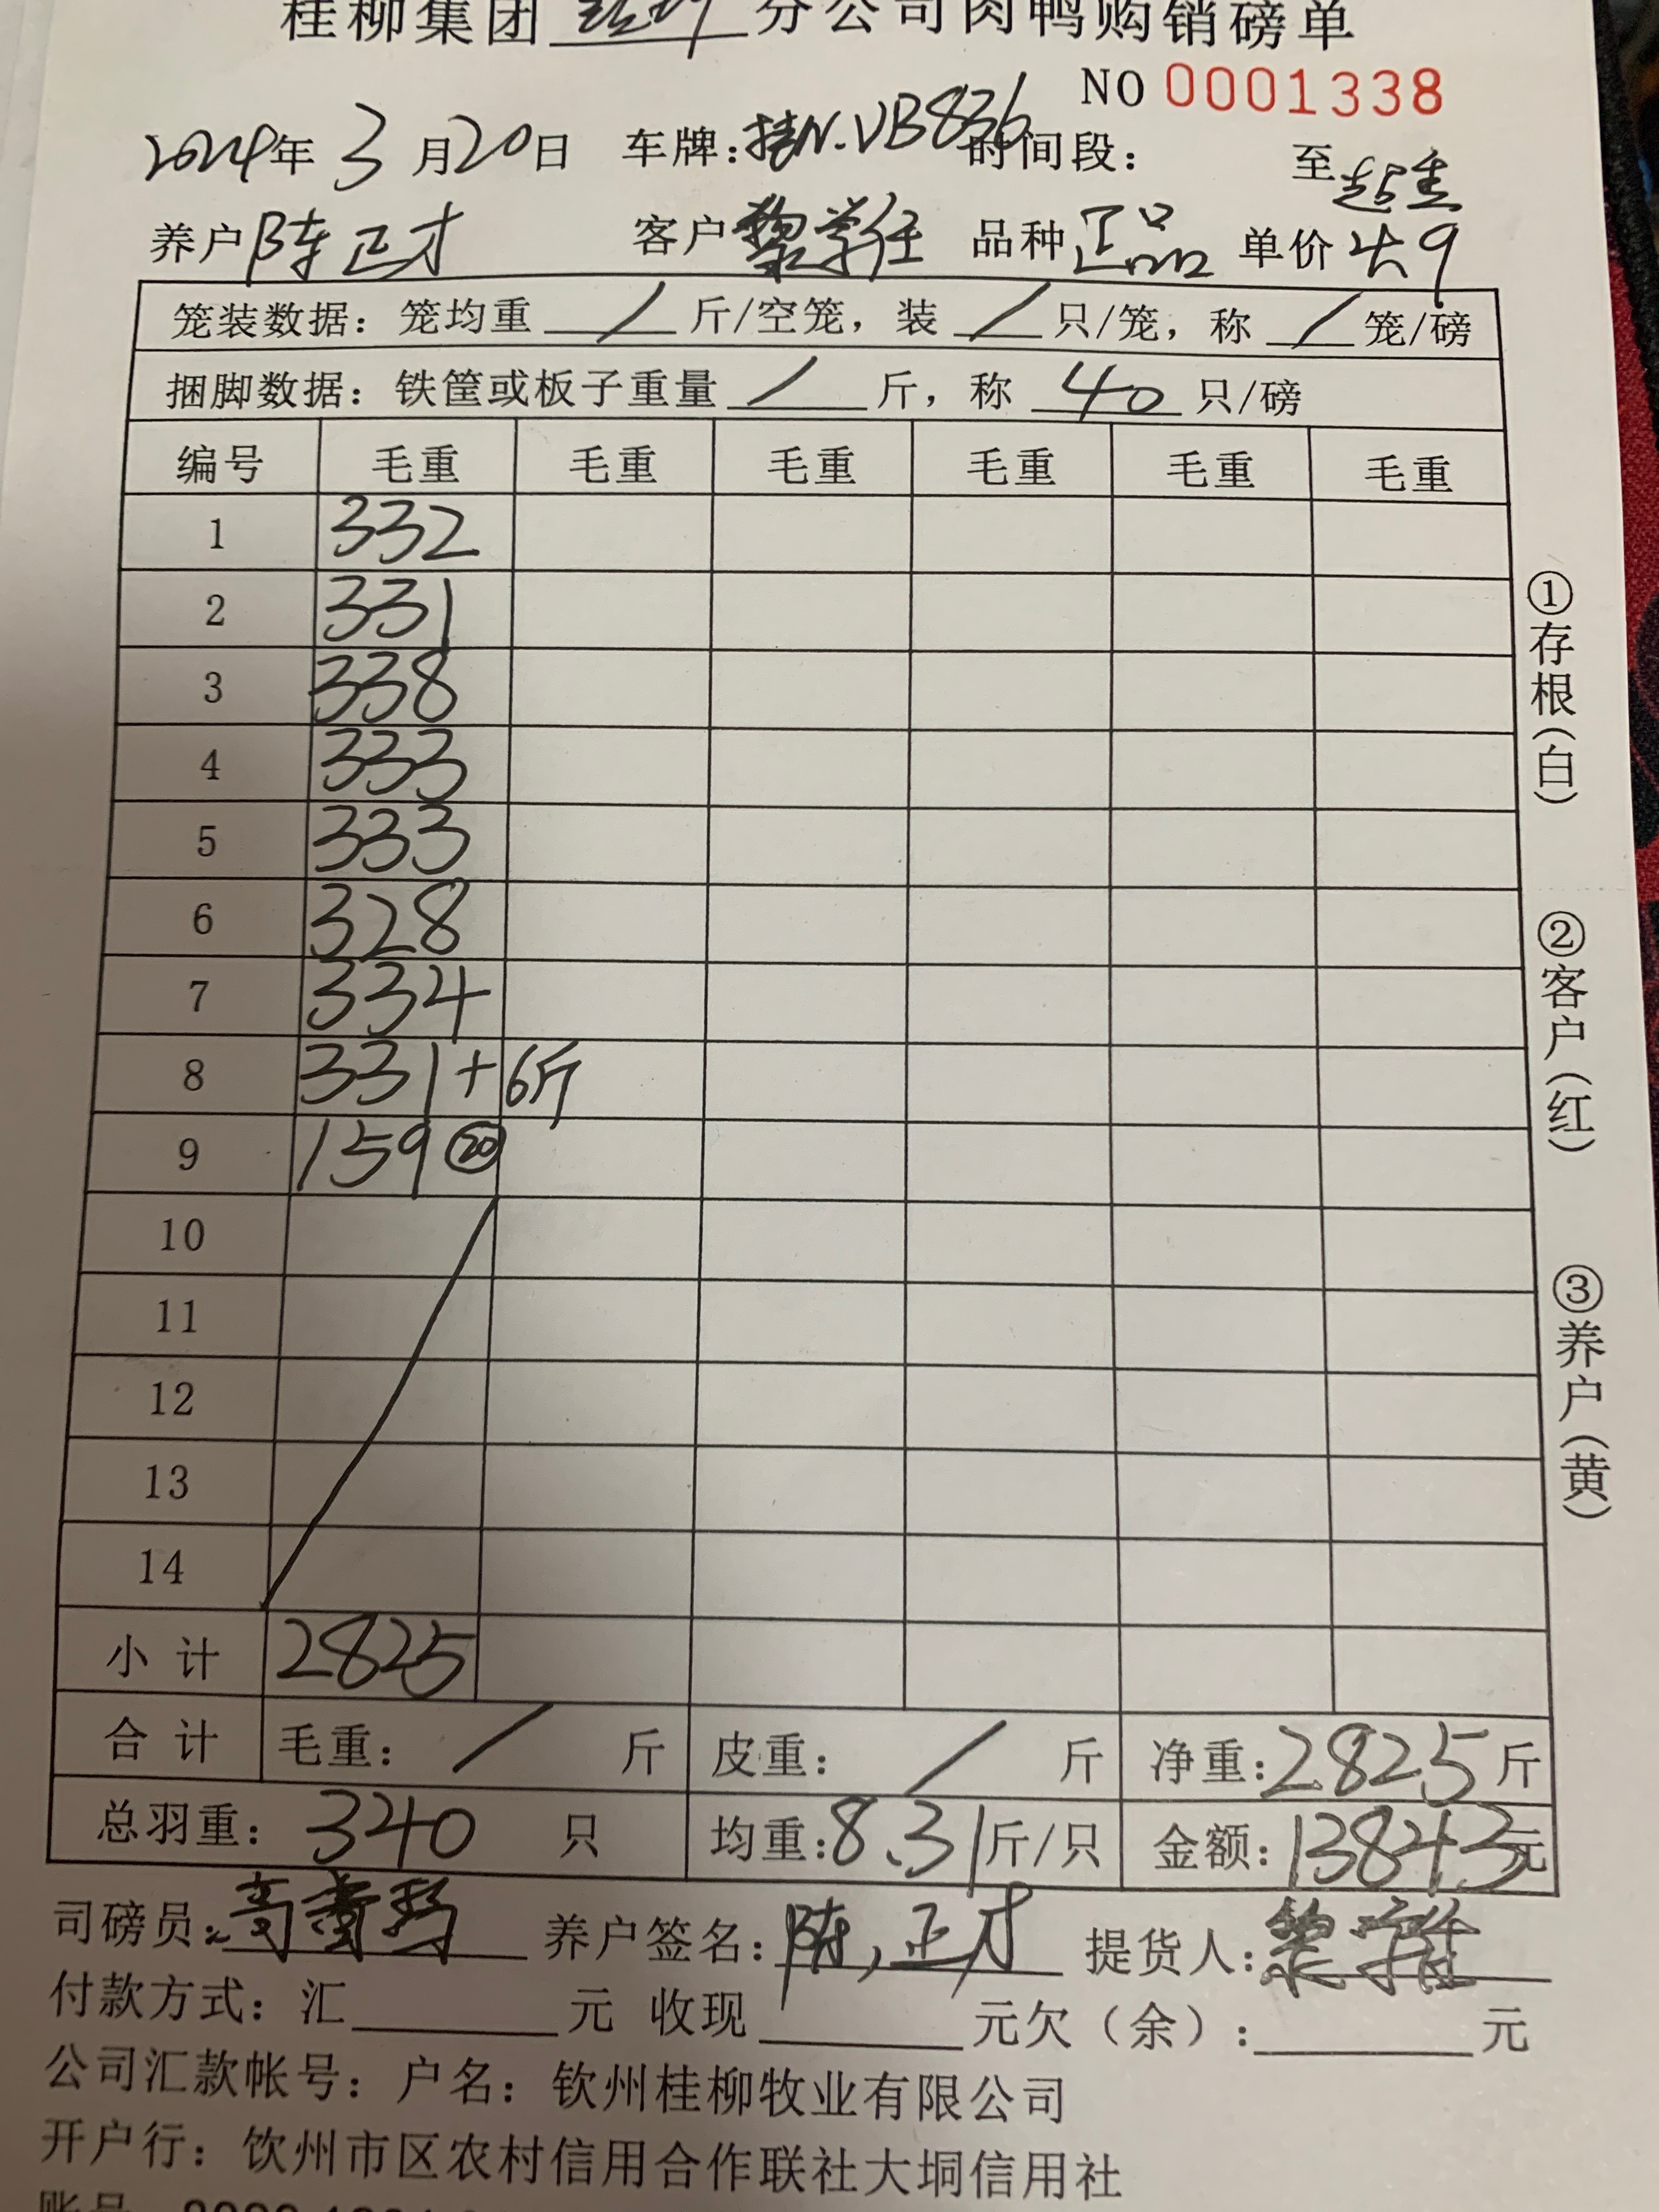 桂柳集团 分公司肉鸭购销磅单
NO 0001338
2024年 3月20日 车牌:桂N.VB836 时间段: 至
养户 陈正才 客户 黎学任 品种 正品 单价 4.9
笼装数据: 笼均重 / 斤/空笼, 装 / 只/笼, 称 / 笼/磅
捆脚数据: 铁筐或板子重量 / 斤, 称 40 只/磅
编号 毛重 毛重 毛重 毛重 毛重 毛重
1 332
2 331
3 338
4 333
5 333
6 328
7 334
8 331+6斤
9 159 ⑳
10
11
12
13
14
小计 2825
合计 毛重: / 斤 皮重: / 斤 净重:2825斤
总羽重: 340 只 均重:8.31斤/只 金额:13843元
司磅员: 养户签名:陈正才 提货人:黎学任
付款方式: 汇 元 收现 元欠(余): 元
公司汇款帐号: 户名: 钦州桂柳牧业有限公司
开户行: 钦州市区农村信用合作联社大垌信用社
①存根(白)
②客户(红)
③养户(黄)